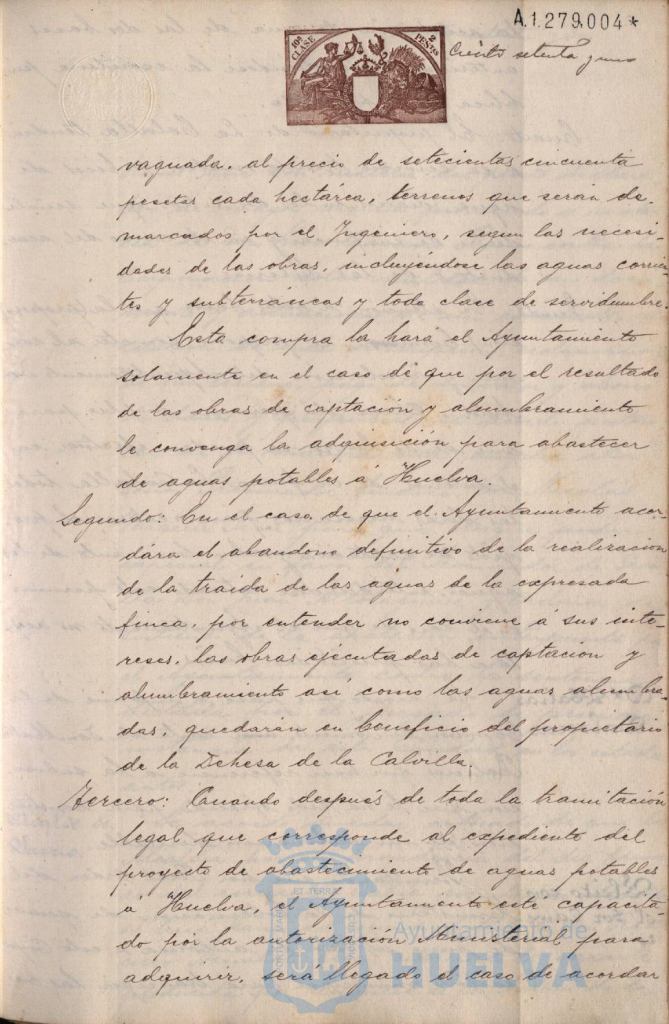 A.1.279.004*
10ª CLASE
2 PESETAS
Ciento setenta y uno
vaguada, al precio de setecientas cincuenta
pesetas cada hectárea, terrenos que serán de-
marcados por el Ingeniero, segun las necesi-
dades de las obras, incluyéndose las aguas corrien-
tes y subterráneas y toda clase de servidumbre.
Esta compra la hará el Ayuntamiento
solamente en el caso de que por el resultado
de las obras de captación y alumbramiento
le convenga la adquisición para abastecer
de aguas potables á Huelva.
Segundo: En el caso de que el Ayuntamiento acor-
dára el abandono definitivo de la realizacion
de la traida de las aguas de la expresada
finca, por entender no conviene á sus inte-
reses, las obras ejecutadas de captacion y
alumbramiento así como las aguas alumbra-
das, quedarán en beneficio del propietario
de la Dehesa de la Calvilla.
Tercero: Cuando después de toda la tramitación
legal que corresponde al expediente del
proyecto de abastecimiento de aguas potables
á Huelva, el Ayuntamiento esté capacita-
do por la autorización Ministerial para
adquirir, será llegado el caso de acordar
Ayuntamiento de
HUELVA